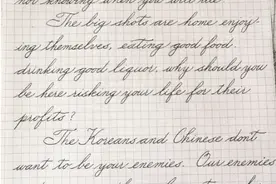 not knowing when you will die
The big shots are home enjoy-
ing themselves, eating good food
drinking good liquor, why should you
be here risking your life for their
profits?
The Koreans and Chinese don't
want to be your enemies. Our enemies